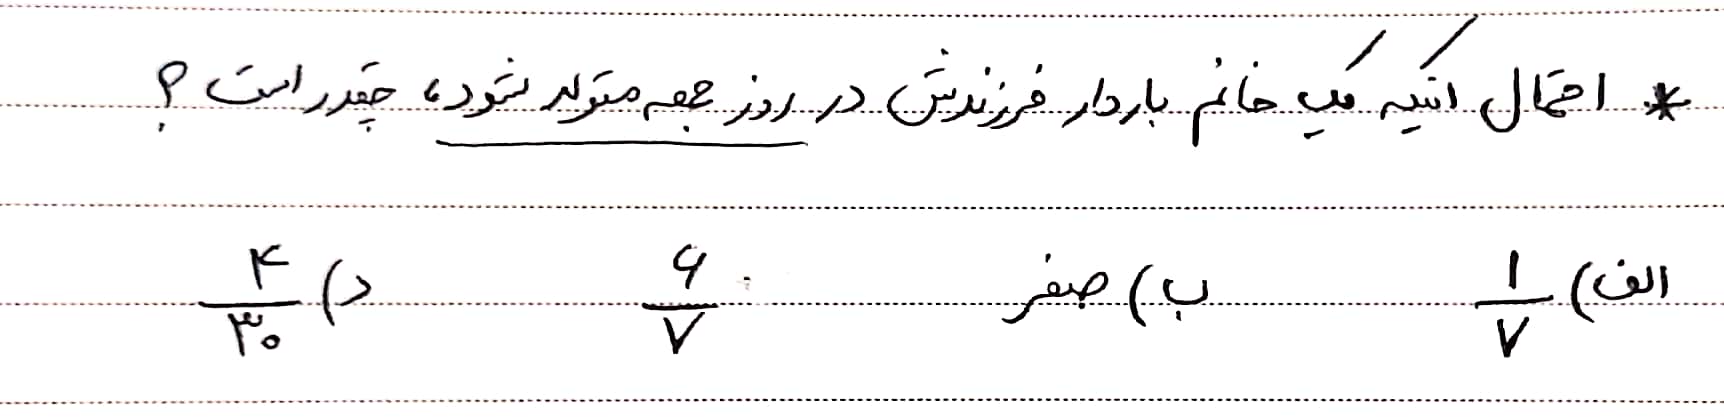 * احتمال اینکه یک خانم باردار فرزندش در روز جمعه متولد نشود، چقدر است ؟
الف) ۱/۷ ب) صفر ۶/۷ د) ۴/۳۰